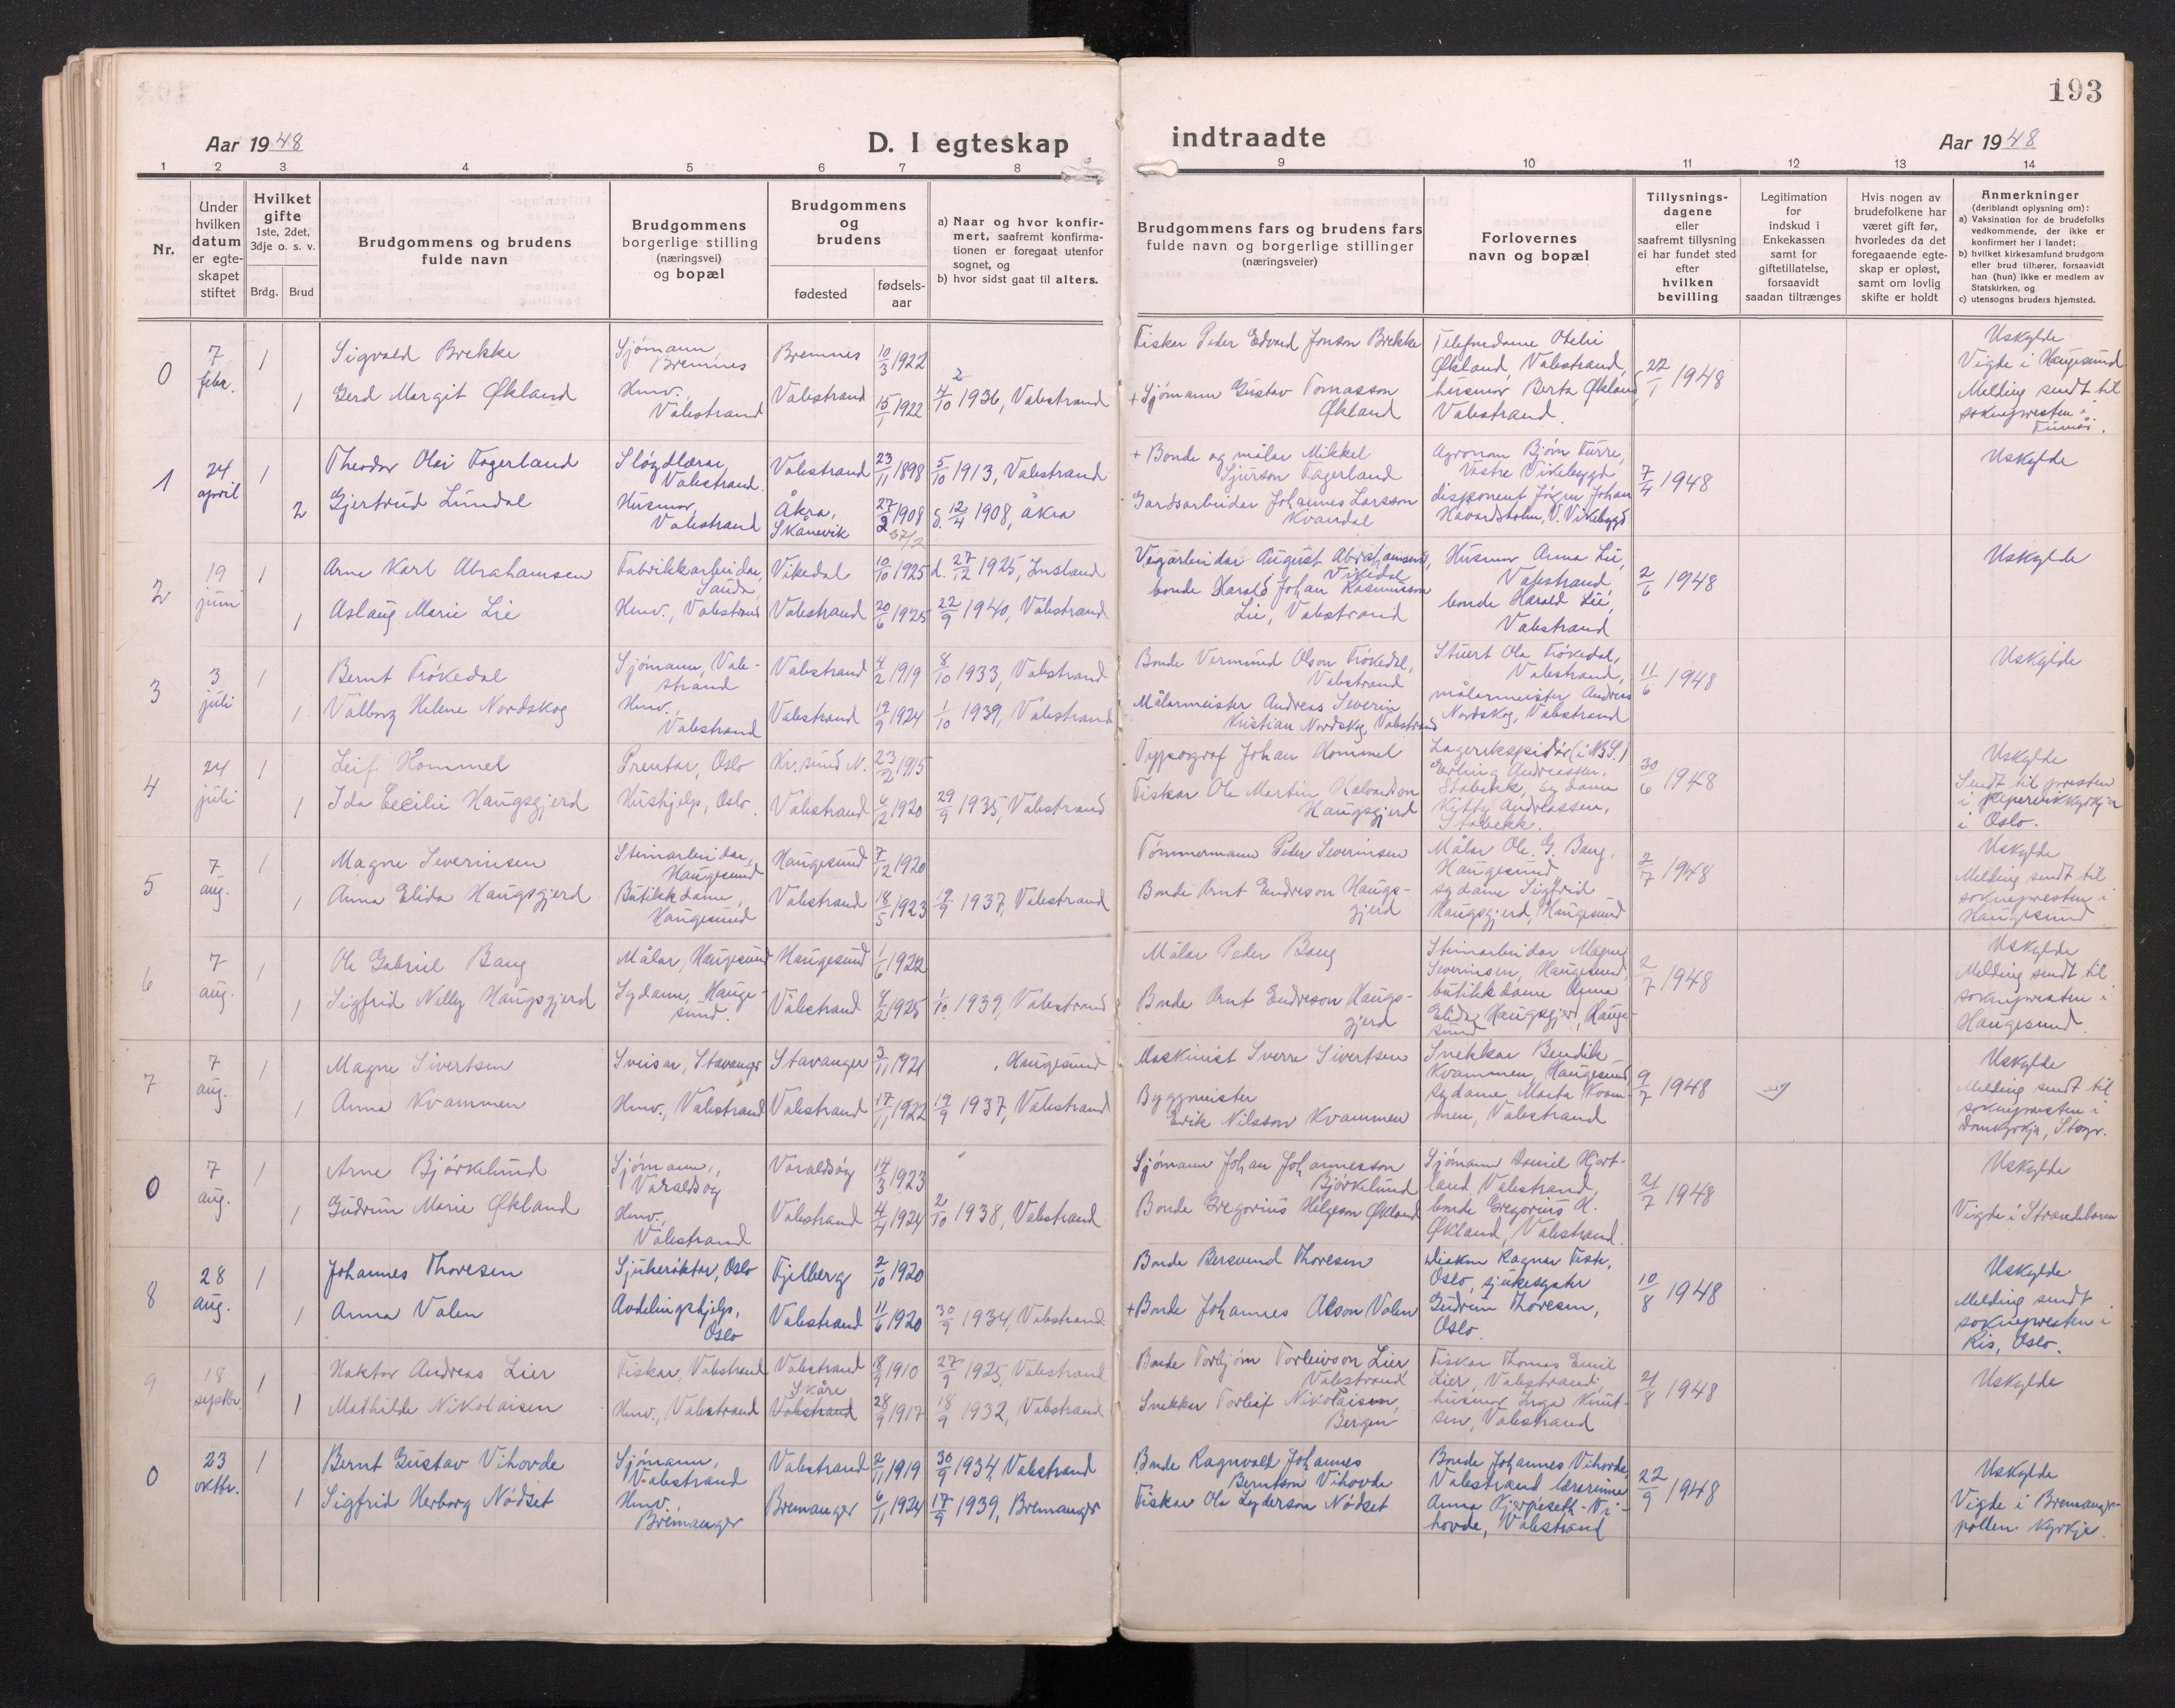 193
Aar 1948
D. I egteskap indtraadte
Aar 1948
1 2 3 4 5 6 7 8 9 10 11 12 13 14
Nr.
Under hvilken datum er egte-skapet stiftet
Hvilket gifte 1ste, 2det, 3dje o. s. v.
Brdg. Brud
Brudgommens og brudens fulde navn
Brudgommens borgerlige stilling (næringsvei) og bopæl
Brudgommens og brudens
fødested
fødsels-aar
a) Naar og hvor konfir-mert, saafremt konfirma-tionen er foregaat utenfor sognet, og
b) hvor sidst gaat til alters.
Brudgommens fars og brudens fars fulde navn og borgerlige stillinger (næringsveier)
Forlovernes navn og bopæl
Tillysnings-dagene eller saafremt tillysning ei har fundet sted efter hvilken bevilling
Legitimation for indskud i Enkekassen samt for giftetillatelse, forsaavidt saadan tiltrænges
Hvis nogen av brudefolkene har været gift før, hvorledes da det foregaaende egte-skap er opløst, samt om lovlig skifte er holdt
Anmerkninger (deriblandt oplysning om):
a) Vaksination for de brudefolks vedkommende, der ikke er konfirmert her i landet;
b) hvilket kirkesamfund brudgom eller brud tilhører, forsaavidt han (hun) ikke er medlem av Statskirken, og
c) utensogns bruders hjemsted.
0 7 febr. 1 Sigvald Brekke Sjømann, Bremnes Bremnes 10/3 1922
1 Gerd Margit Økland Hmv. Valestrand Valestrand 15/1 1922 4/10 1936, Valestrand
Fisker Peder Edvard Jonson Brekke
+ Sjømann Gustav Tomasson Økland
Telefondame Økland, Valestrand,
husmor Berta Økland
Valestrand.
22/1 1948
Uskylde
Vigde i Haugesund
Melding sendt til
soknepresten i
1 24 april 1 Theodor Olai Fagerland Sløydlærar, Valestrand. Valestrand 23/11 1898 5/10 1913, Valestrand
2 Gjertrud Lundal Husmor, Valestrand Åkra, Skånevik 27/2 1908 12/4 1908, Åkra
+ Bonde og målar Mikkel Sjurson Fagerland
Gardsarbeidar Johannes Larsson Kvandal
Agronom Bjørn Furre,
Vestre Vikebygd
disponent Jørgen Johan
Håvardsholm, V. Vikebygd
7/4 1948
Uskylde
2 19 juni 1 Arne Karl Abrahamsen Fabrikkarbeidar, Sauda, Vikedal 10/10 1925 d. 27/12 1925, Imsland
1 Aslaug Marie Lie Hmv., Valestrand Valestrand 20/6 1925 22/9 1940, Valestrand
Vegarbeidar August Abrahamsen, Vikedal
bonde Harald Johan Rasmusson
Lie, Valestrand
Husmor Anna Lie,
Valestrand,
bonde Harald Lie,
Valestrand
2/6 1948
Uskylde
3 3 juli 1 Bernt Frøkedal Sjømann, Vale-strand Valestrand 4/2 1919 8/10 1933, Valestrand
1 Valborg Helene Nordskog Hmv., Valestrand Valestrand 19/9 1924 1/10 1939, Valestrand
Bonde Vermund Olson Frøkedal,
Valestrand
Målarmeister Andreas Severin
Kristian Nordskog, Valestrand
Stuert Ola Frøkedal,
Valestrand,
målarmeister Andreas
Nordskog, Valestrand
11/6 1948
Uskylde
4 24 juli 1 Leif Hommel Prentar, Oslo Kr.sund N. 23/2 1915
1 Ida Cecilie Haugsgjerd Hushjelp, Oslo. Valestrand 6/2 1920 29/9 1935, Valestrand
Typograf Johan Hommel
Fiskar Ole Martin Halvardson
Haugsgjerd
Lagerekspeditør (i N.S.B.)
Erling Andreassen,
Stabekk, sydame
Kitty Andreassen,
Stabekk.
30/6 1948
Uskylde
Sendt til presten
i Piperviks kyrkja
i Oslo.
5 7 aug. 1 Magne Severinsen Steinarbeidar, Haugesund Haugesund 7/12 1920
1 Anna Elida Haugsgjerd Butikkdame, Haugesund Valestrand 18/5 1923 19/9 1937, Valestrand
Tømmermann Peder Severinsen
Bonde Arnt Endreson Haugs-gjerd
Målar Ole G. Bang,
Haugesund
sydame Sigfrid
Haugsgjerd, Haugesund
2/7 1948
Uskylde
Melding sendt til
soknepresten i
Haugesund
6 7 aug. 1 Ole Gabriel Bang Målar, Haugesund Haugesund 1/6 1922
1 Sigfrid Nelly Haugsgjerd Sydame, Hauge-sund. Valestrand 8/2 1925 1/10 1939, Valestrand
Målar Peder Bang
Bonde Arnt Endreson Haugs-gjerd
Steinarbeidar Magne
Severinsen, Haugesund,
butikkdame Anna
Elida Haugsgjerd, Hauge-sund
2/7 1948
Uskylde
Melding sendt til
soknepresten i
Haugesund.
7 7 aug. 1 Magne Sivertsen Sveisar, Stavanger Stavanger 3/11 1921 , Haugesund
1 Anna Kvammen Hmv., Valestrand Valestrand 17/11 1922 19/9 1937, Valestrand
Maskinist Sverre Sivertsen
Byggmeister
Erik Nilsson Kvammen
Snekkar Bendik
Kvammen, Haugesund,
sydame Marta Kvam-
men, Valestrand
9/7 1948
Uskylde
Melding sendt til
soknepresten i
Domkyrkja, Stvgr.
0 7 aug. 1 Arne Bjørkelund Sjømann, Varaldsøy Varaldsøy 14/3 1923
1 Gudrun Marie Økland Hmv., Valestrand Valestrand 4/4 1924 2/10 1938, Valestrand
Sjømann Johan Johannesson
Bjørkelund
Bonde Gregorius Helgeson Økland
Sjømann Daniel Hjort-
land, Valestrand,
bonde Gregorius H.
Økland, Valestrand.
21/7 1948
Uskylde
Vigde i Strandebarm
8 28 aug. 1 Johannes Thoresen Sjukerøktar, Oslo Fjelberg 2/10 1920
1 Anna Valen Avdelingshjelp, Oslo Valestrand 11/6 1920 30/9 1934, Valestrand
Bonde Bersvend Thoresen
+ Bonde Johannes Olson Valen
Diakon Ragnar
Oslo, sjukesyster
Gudrun Thoresen,
Oslo.
10/8 1948
Uskylde
Melding sendt
soknepresten i
Ris, Oslo.
9 18 septbr. 1 Haktor Andreas Lier Fiskar, Valestrand Valestrand 18/9 1910 27/9 1925, Valestrand
1 Mathilde Nikolaisen Hmv., Valestrand Skåre Valestrand 28/9 1917 18/9 1932, Valestrand
Bonde Torbjørn Torleivson Lier
Valestrand
Snekker Torleif Nikolaisen,
Bergen
Fiskar Thomas Emil
Lier, Valestrand
husmor Inga Knut-
sen, Valestrand
21/8 1948
Uskylde
0 23 oktbr. 1 Bernt Gustav Vihovde Sjømann, Valestrand Valestrand 2/11 1919 30/9 1934, Valestrand
1 Sigfrid Herborg Nødset Hmv., Bremanger Bremanger 6/11 1924 17/9 1939, Bremanger
Bonde Ragnvald Johannes
Berntson Vihovde
Fiskar Ola Lyderson Nødset
Bonde Johannes Vihovde,
Valestrand lærarinne
Anna Vi-
hovde, Valestrand
22/9 1948
Uskylde
Vigde i Bremanger-
pollen kyrkje.